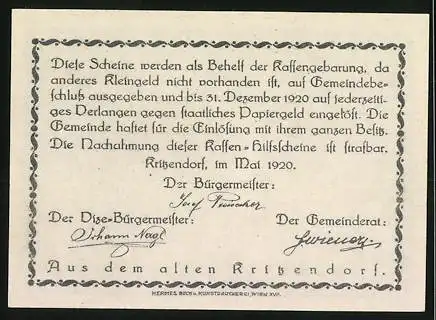 Diese Scheine werden als Behelf der Kassengebarung, da
anderes Kleingeld nicht vorhanden ist, auf Gemeindebe-
schluß ausgegeben und bis 31. Dezember 1920 auf jederzeiti-
ges Verlangen gegen staatliches Papiergeld eingelöst. Die
Gemeinde haftet für die Einlösung mit ihrem ganzen Besitz.
Die Nachahmung dieser Kassen-Hilfsscheine ist strafbar.
Kritzendorf, im Mai 1920.
Der Bürgermeister:
Josef
Der Vize-Bürgermeister:
Der Gemeinderat:
Johann Nagl
Aus dem alten Kritzendorf.
HERMES BUCH u. KUNSTDRUCKEREI, WIEN XVII.